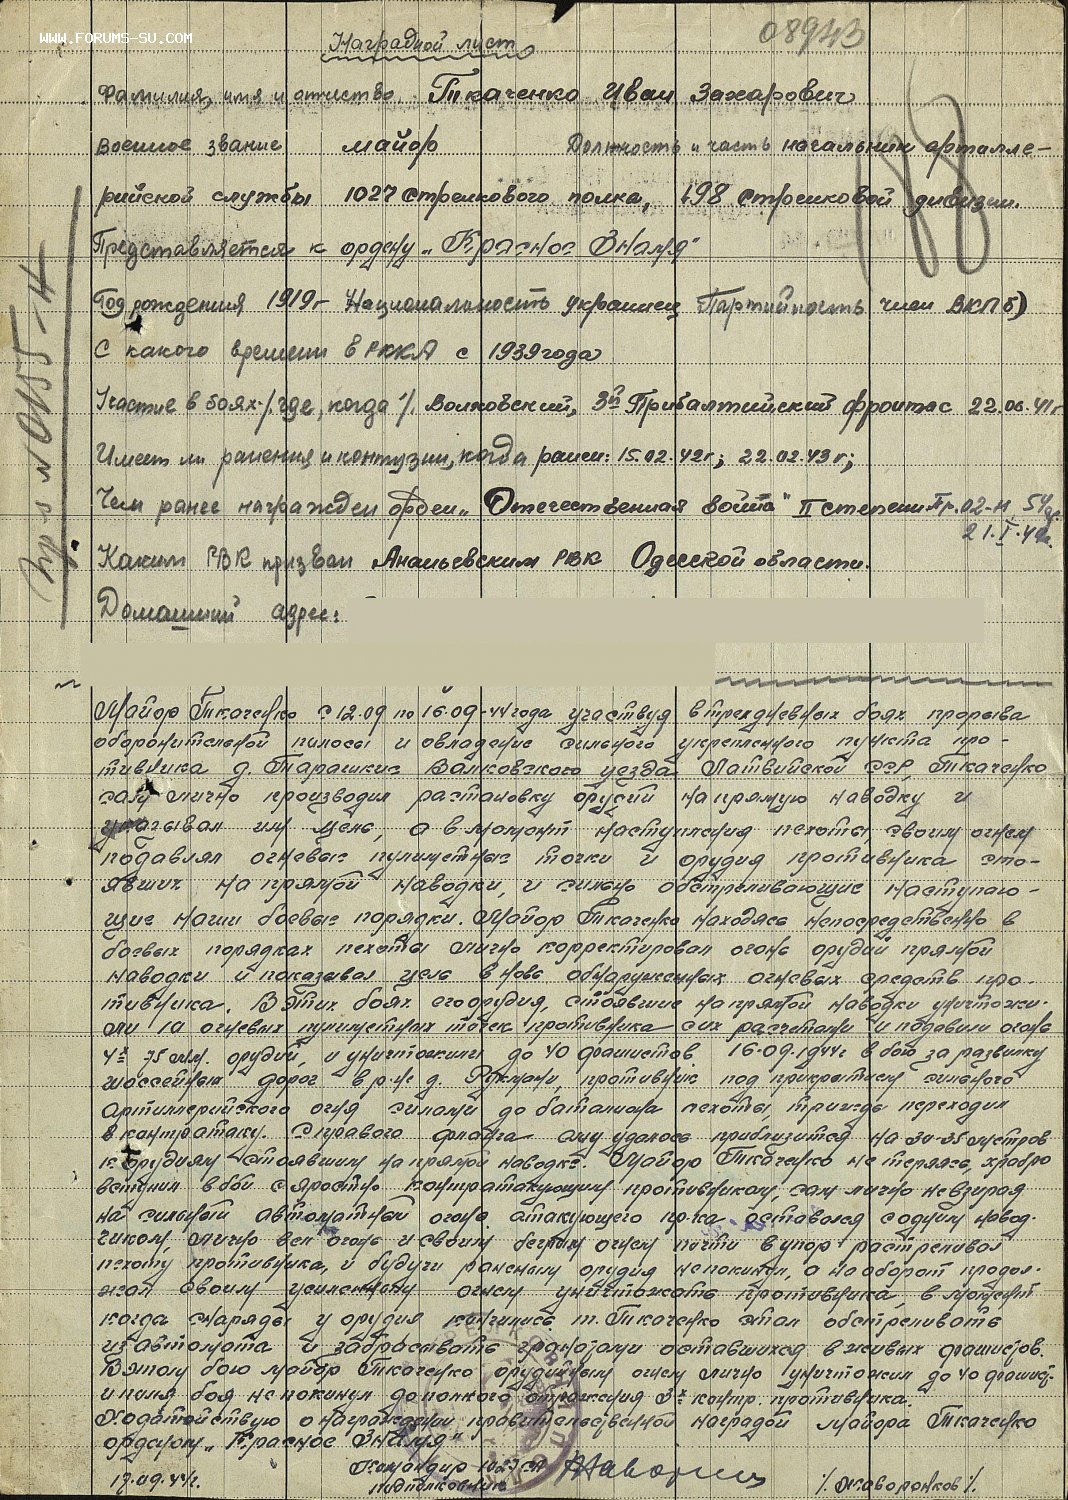 WWW.FORUMS-SU.COM
08943
Наградной лист
188
Фамилия, имя и отчество Ткаченко Иван Захарович
Военное звание майор Должность и часть начальник артилле-
рийской службы 1027 стрелкового полка, 198 стрелковой дивизии.
Представляется к ордену „Красное Знамя"
Год рождения 1919г Национальность украинец Партийность член ВКПб)
С какого времени в РККА с 1939года
Участие в боях /где, когда/. Волховский, 3й Прибалтийский фронт с 22.06.41г
Имеет ли ранения и контузии, когда ранен: 15.02.42г; 22.02.43г;
Чем ранее награжден орден „Отечественная война" II степени Пр.02-н
21.I.44г.
Каким РВК призван Ананьевским РВК Одесской области.
Домашний адрес:
Пр-з N 0155-н
Майор Ткаченко с 12.09 по 16.09.44года участвуя в трехдневных боях прорыва
оборонительной полосы и овладение сильного укрепленного пункта про-
тивника д. Тарашкис Валковского уезда Латвийской ССР, Ткаченко
сам лично производил растановку орудий на прямую наводку и
указывал им цель, а в момент наступления пехоты своим огнем
подавлял огневые пулиметные точки и орудия противника сто-
явших на прямой наводки, и сильно обстреливающие наступаю-
щие наши боевые порядки. Майор Ткаченко находясь непосредственно в
боевых порядках пехоты лично корректировал огонь орудий прямой
наводки и показывал цель вновь обнаруженных огневых средств про-
тивника. В этих боях его орудия, стоявшие на прямой наводки уничтожи-
ли 10 огневых пулиметных точек противника с их расчетами и подавили огонь
4х 75 мм. орудий, и уничтожили до 40 фашистов 16.09.1944г в бою за развилку
шоссейных дорог в р-не д. противник под прикрытием сильного
артиллерийского огня силами до батальона пехоты, трижды переходил
в контратаку. С правого фланга ему удалось приблизится на 30-35 метров
к орудиям стоявшим на прямой наводке. Майор Ткаченко не теряясь, храбро
вступил в бой с яростно контратакующим противником, сам лично невзирая
на сильный автоматный огонь атакующего пр-ка оставался с одним навод-
чиком, лично вел огонь и своим беглым огнем почти в упор растреливал
пехоту противника, и будучи раненым орудия не покинул, а наоборот продол-
жал своим усиленным огнем уничтожать противника, в момент
когда снаряды у орудия кончились т. Ткаченко стал обстреливать
из автомата и забрасывать гранатами оставшихся в живых фашистов.
В этом бою майор Ткаченко орудийным огнем лично уничтожил до 40 фашист-
и поля боя не покинул до полного отражения 3х контр. противника.
Ходатайствую о награждении правительственной наградой майора Ткаченко
орденом „Красное Знамя"
17.09.44г. Командир 1027 СП
подполковник /Жаворонков/.